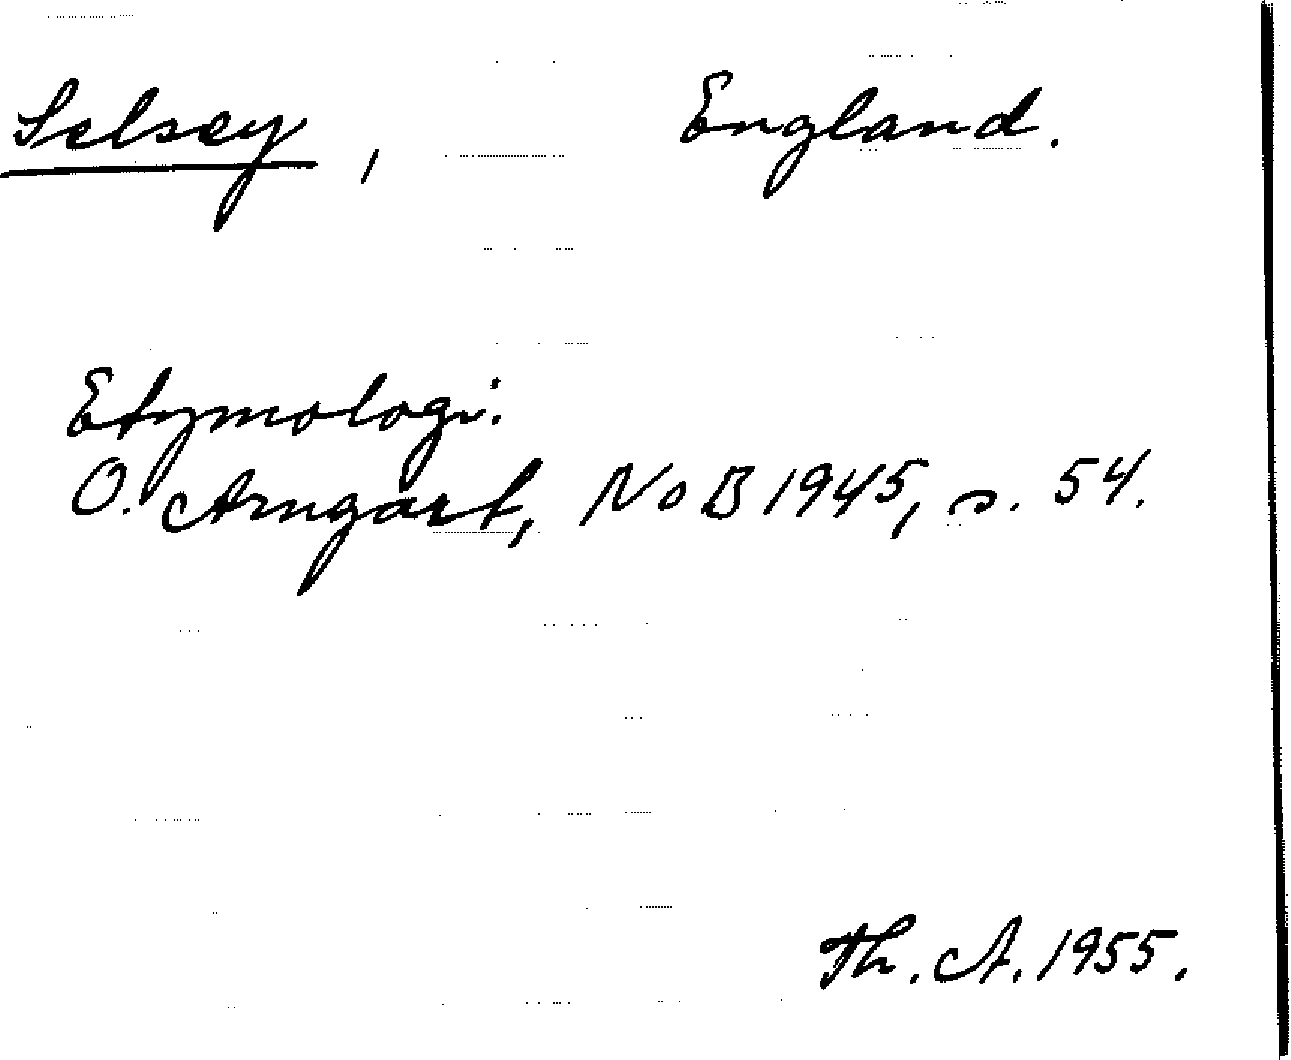 Selsey, England.
Etymologi:
O. Arngart, NoB 1945, s. 54.
Th. A. 1955.